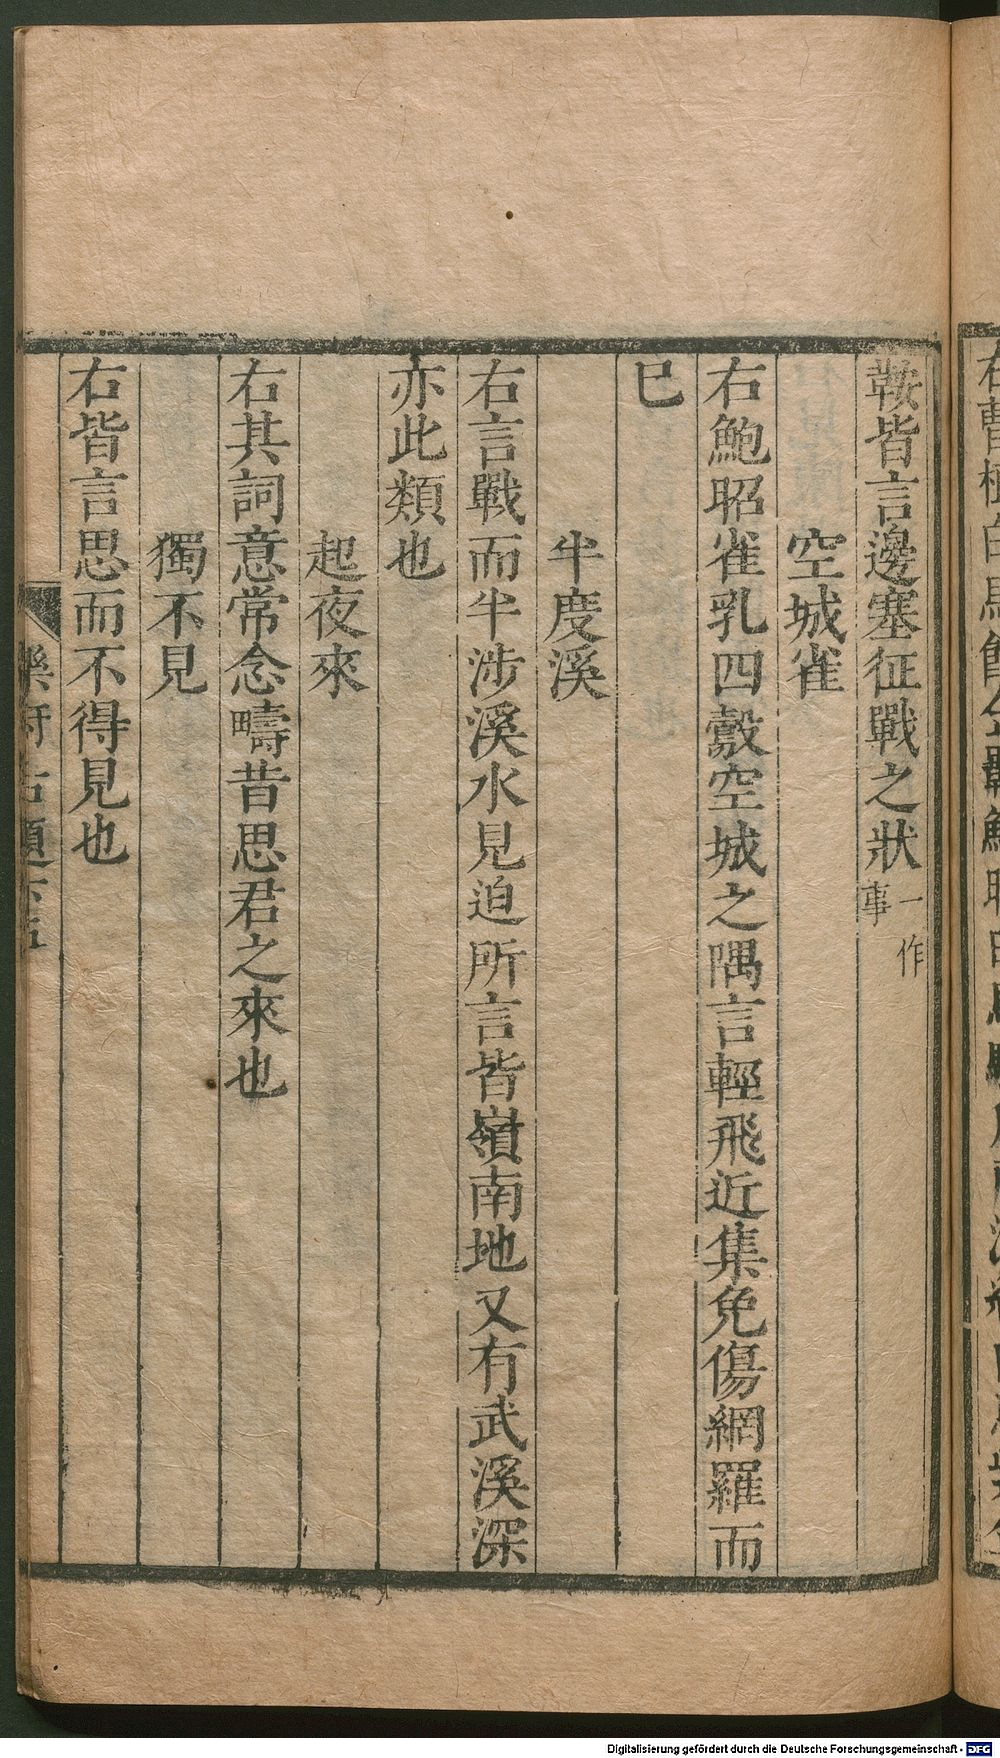 鞍皆言邊塞征戰之狀一作事
空城雀
右鮑昭雀乳四鷇空城之隅言輕飛近集免傷網羅而
已
半度溪
右言戰而半涉溪水見迫所言皆嶺南地又有武溪深
亦此類也
起夜來
右其詞意常念疇昔思君之來也
獨不見
右皆言思而不得見也
樂府古題下五
Digitalisierung gefördert durch die Deutsche Forschungsgemeinschaft - DFG